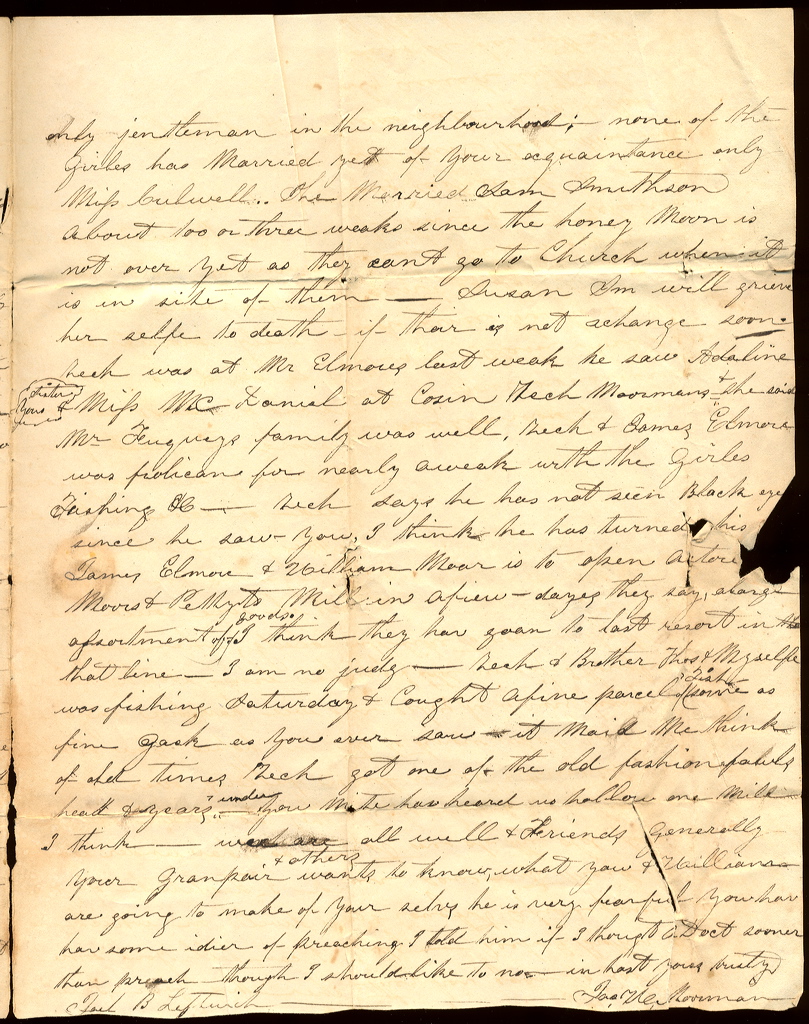 only jentleman in the neighbourhood; none of the
Girles has Married yet of your acquaintance only
Miss Culwell.. She Married Sam Smithson
about too or three weaks since the honey Moon is
not over yet as they cant go to Church when it
is in site of them — Susan Im will grieve
her selfe to death - if thair is not achange soon.
Zech was at Mr Elmores last weak he saw Adaline
Sister
Yours & Miss Mc Daniel at Cosin Zech Moormans & she said
Mr Fuquays family was well, Zech & James Elmore
was frolican for nearly aweak with the Girles
Fishing &C — Zech says he has not seen Black eye
since he saw you, I think he has turned his
James Elmore & William Moor is to open astore
Moors & Pettyts Mill in afiew - dayes they say, alarge
goods.
assortment of I think they hav goan to last resort in the
that line — I am no judg — Zech & Brother Thos & My selfe
Fish
was fishing Saturday & Cought afine parcel of some as
fine Jack as you ever saw - it Maid Me think
of old times Zech got one of the old fashion falls
under
head & years — you Mite hav heard us hollow one Mile
I think — we are all well & Friends Generally
& others
Your Granpair wants to know, what you & William
are going to make of your selvs he is very fearful you hav
hav some idier of preaching I told him if I thought a Doct sooner
than preach - though I should like to no — in hast yours truly
Joel B Leftwich — Jas. H. Moorman